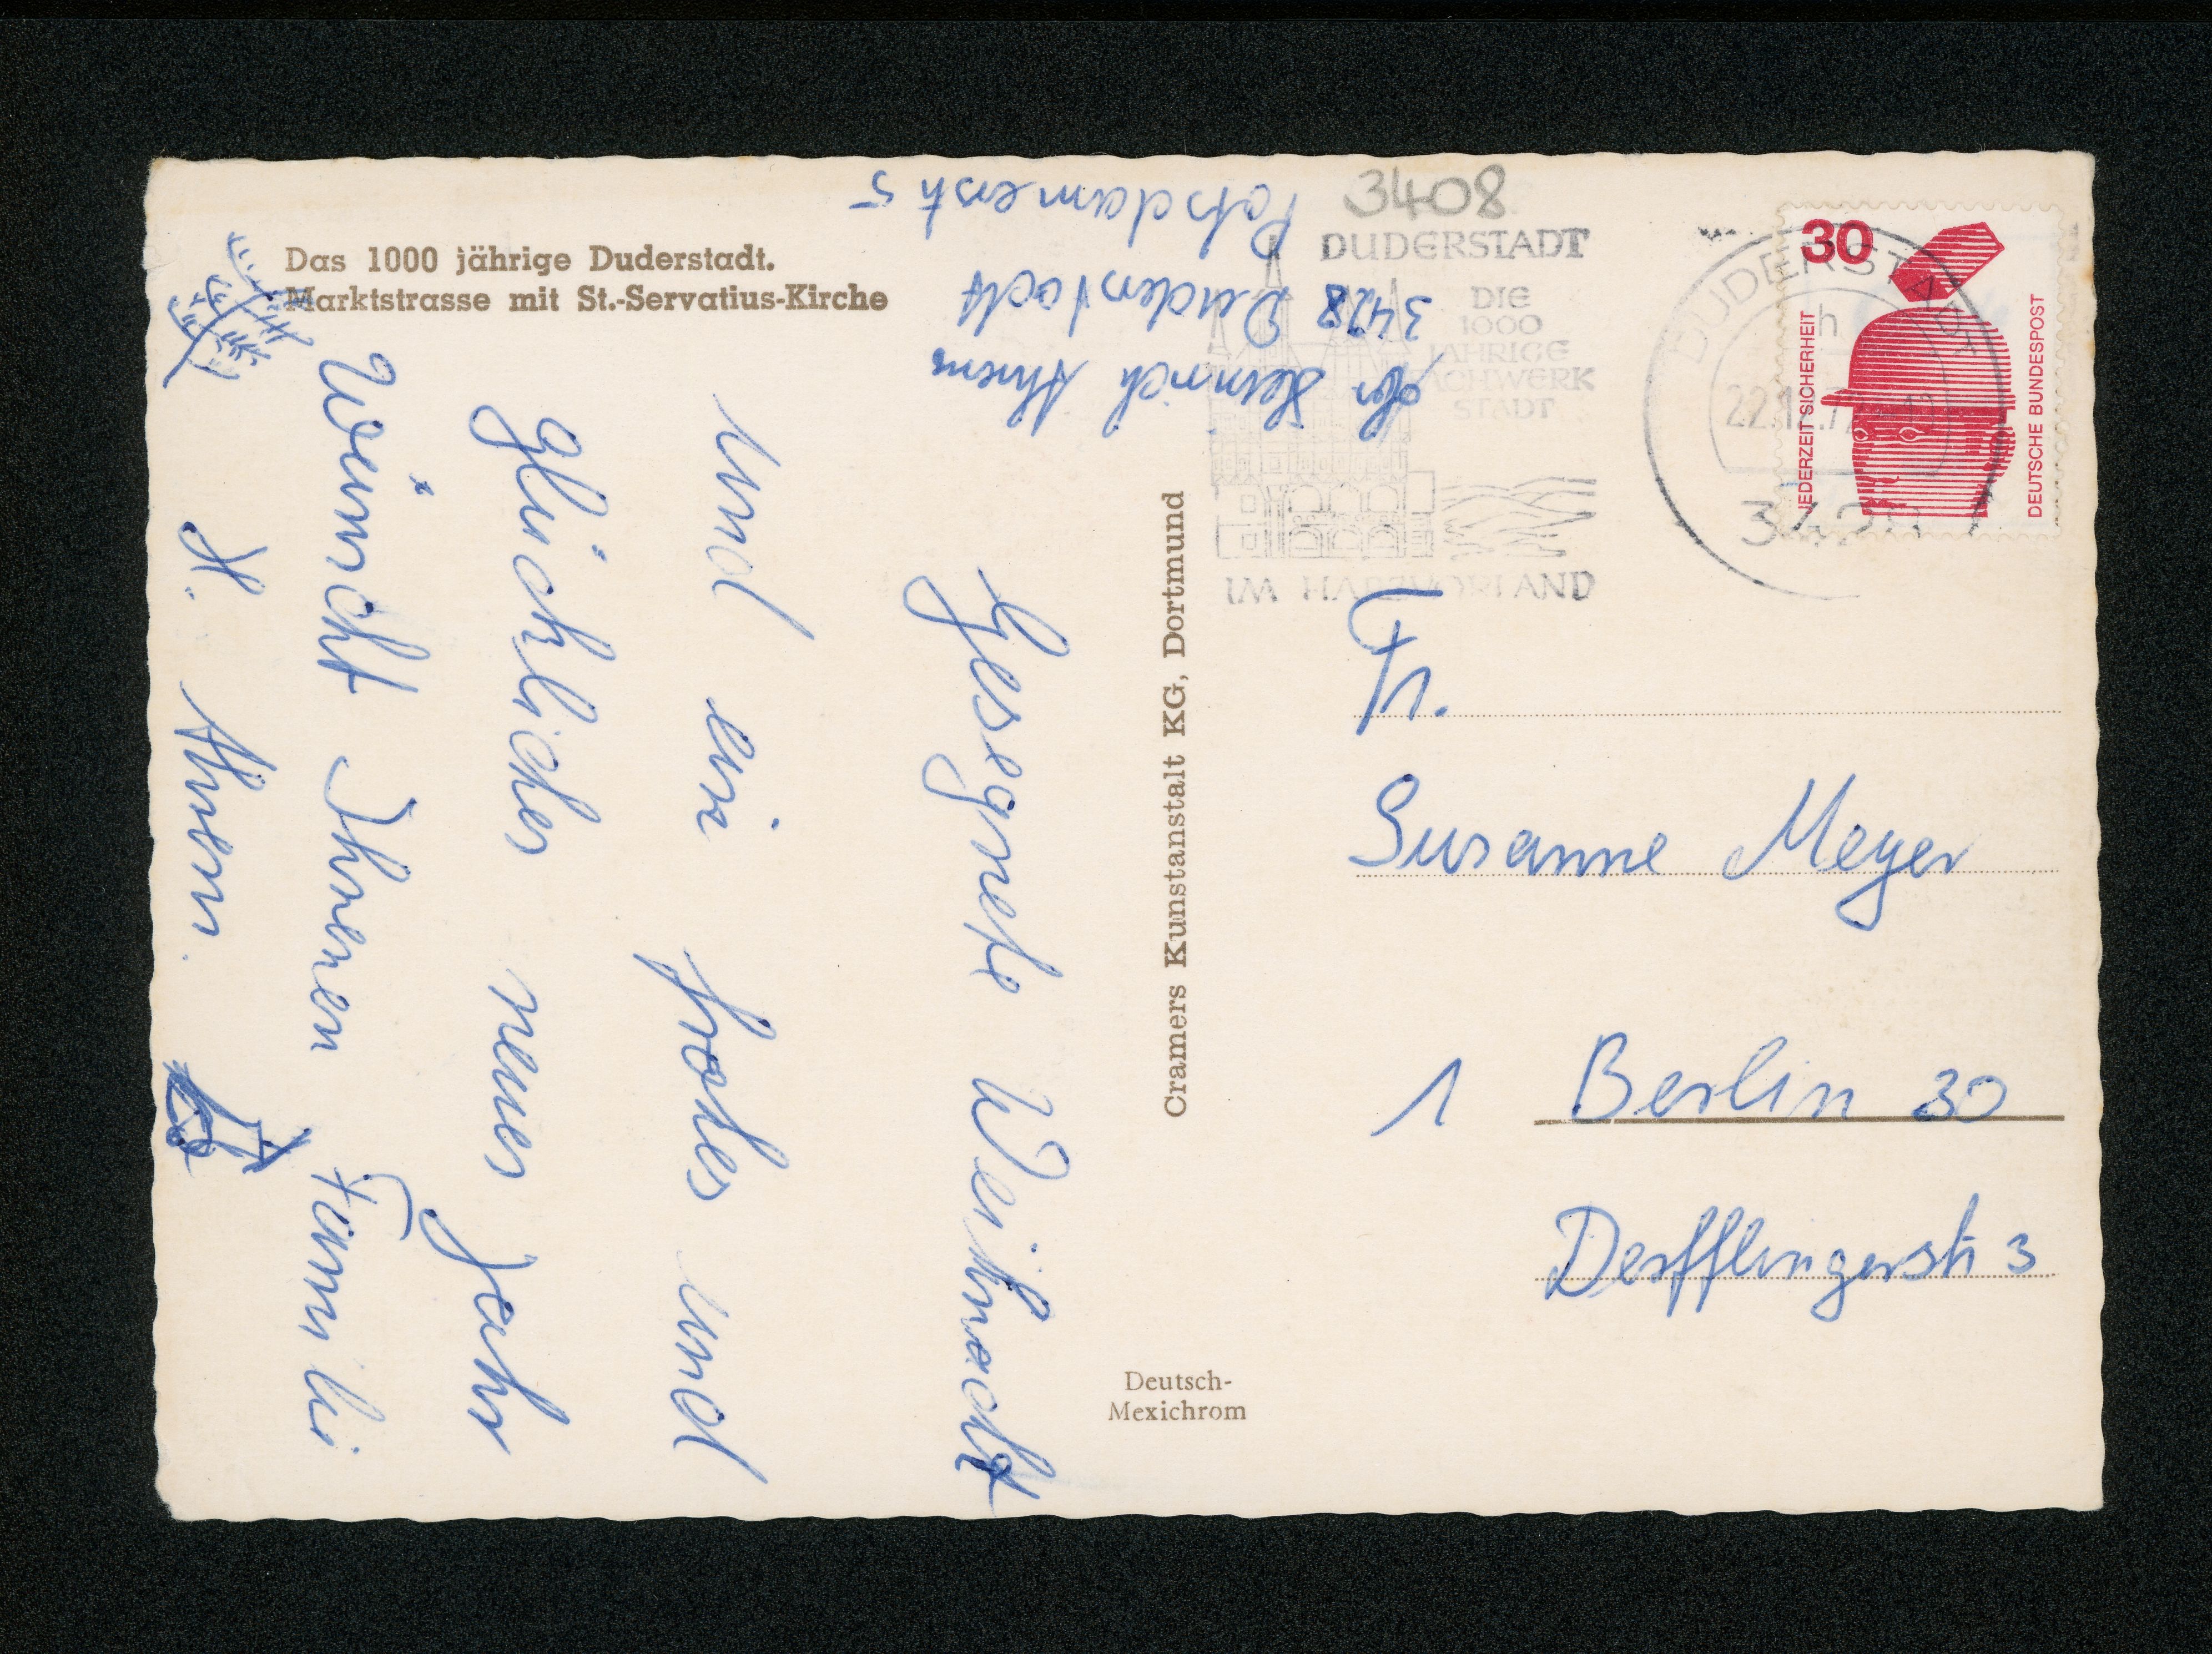 Das 1000 jährige Duderstadt.
Marktstrasse mit St.-Servatius-Kirche
Gesegnete Weihnacht
und ein frohes und
glückliches neues Jahr
Wünscht Ihnen Famili
H. Ahrens.
Abs. Heinrich Ahrens
3428 Duderstadt
Potsdamerstr 5
Cramers Kunstanstalt KG, Dortmund
Deutsch-
Mexichrom
3408
DUDERSTADT
DIE
1000
JÄHRIGE
FACHWERK
STADT
IM HARZVORLAND
DUDERSTADT
h
22.12.7
3428
30
JEDERZEIT SICHERHEIT
DEUTSCHE BUNDESPOST
Fr.
Susanne Meyer
1 Berlin 30
Derfflingerstr 3